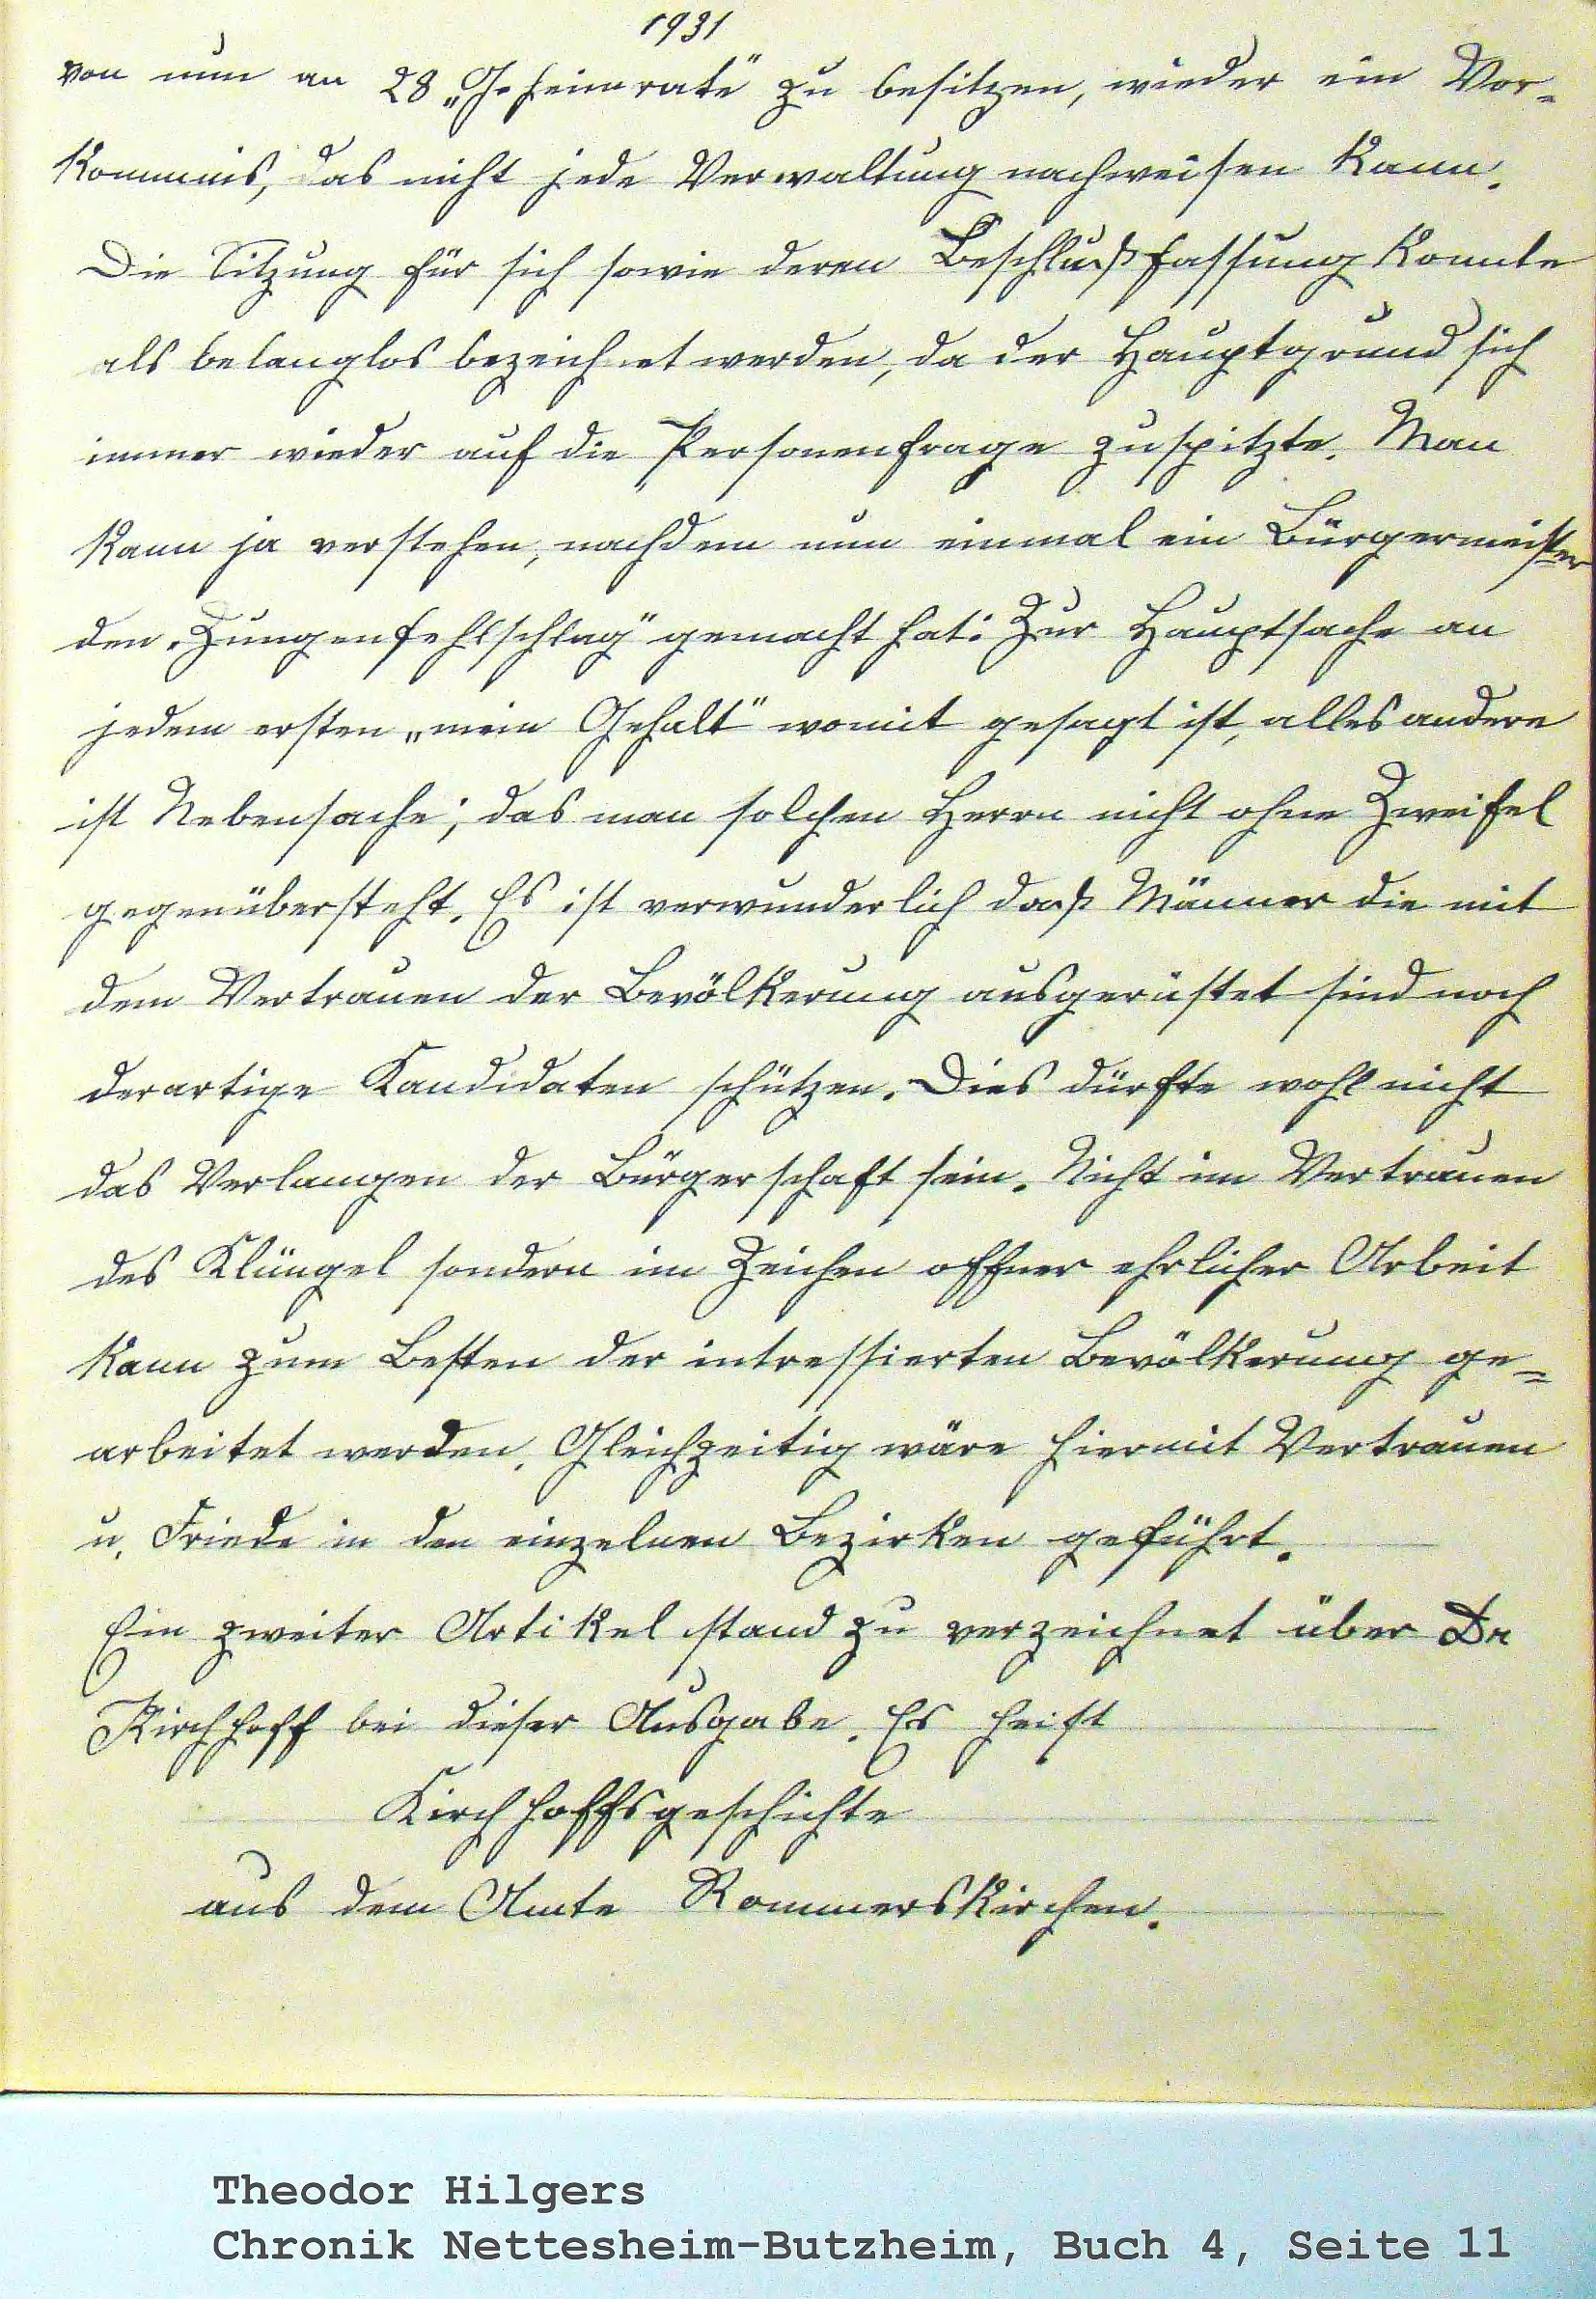 1931
von nun an 28 „Geheimrate" zu besitzen, wieder ein Vor-
kommnis, das nicht jede Verwaltung nachweisen kann.
Die Sitzung für sich sowie deren Beschlußfassung konnte
als belanglos bezeichnet werden, da der Hauptgrund sich
immer wieder auf die Personenfrage zuspitzte. Man
kann ja verstehen, nachdem nun einmal ein Bürgermeister
den „Zungenfehlschlag" gemacht hat: Zur Hauptsache an
jedem ersten „mein Gehalt" womit gesagt ist, alles andere
ist Nebensache; das man solchen Herrn nicht ohne Zweifel
gegenübersteht. Es ist verwunderlich daß Männer die mit
dem Vertrauen der Bevölkerung ausgerüstet sind noch
derartige Kandidaten schützen. Dies dürfte wohl nicht
das Verlangen der Bürgerschaft sein. Nicht im Vertrauen
des Klüngel sondern im Zeichen offner ehrlicher Arbeit
kann zum Besten der intressierten Bevölkerung ge=
arbeitet werden. Gleichzeitig wäre hiermit Vertrauen
u. Friede in den einzelnen Bezirken geführt.
Ein zweiter Artikel stand zu verzeichnet über Dr
Kirchhoff bei dieser Ausgabe. Es heist
Kirchhoffsgeschichte
aus dem Amte Rommerskirchen.
Theodor Hilgers
Chronik Nettesheim-Butzheim, Buch 4, Seite 11